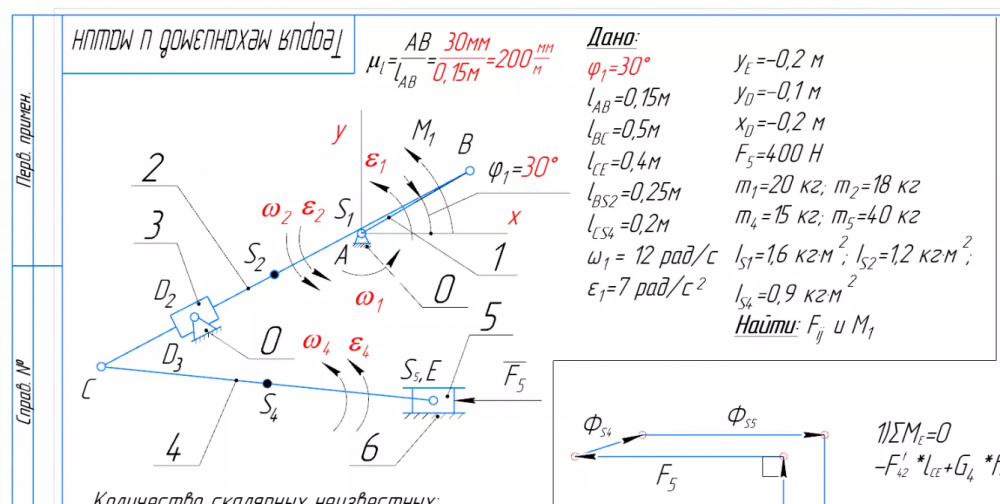 Теория механизмов и машин
Перв. примен.
Справ. №
μl = AB/lAB = 30мм/0,15м = 200 мм/м
Дано:
φ1=30°
lAB=0,15м
lBC=0,5м
lCE=0,4м
lBS2=0,25м
lCS4=0,2м
ω1 = 12 рад/с
ε1=7 рад/с²
yE=-0,2 м
yD=-0,1 м
xD=-0,2 м
F5=400 Н
m1=20 кг; m2=18 кг
m4=15 кг; m5=40 кг
IS1=1,6 кг·м²; IS2=1,2 кг·м²;
IS4=0,9 кг·м²
Найти: Fij и M1
y
M1
B
ε1
φ1=30°
2
3
ω2
ε2
S1
x
A
1
S2
ω1
0
D2
D3
0
ω4
ε4
5
C
S5,E
F5
S4
4
6
Количество скалярных неизвестных:
ΦS4
ΦS5
F5
1)ΣME=0